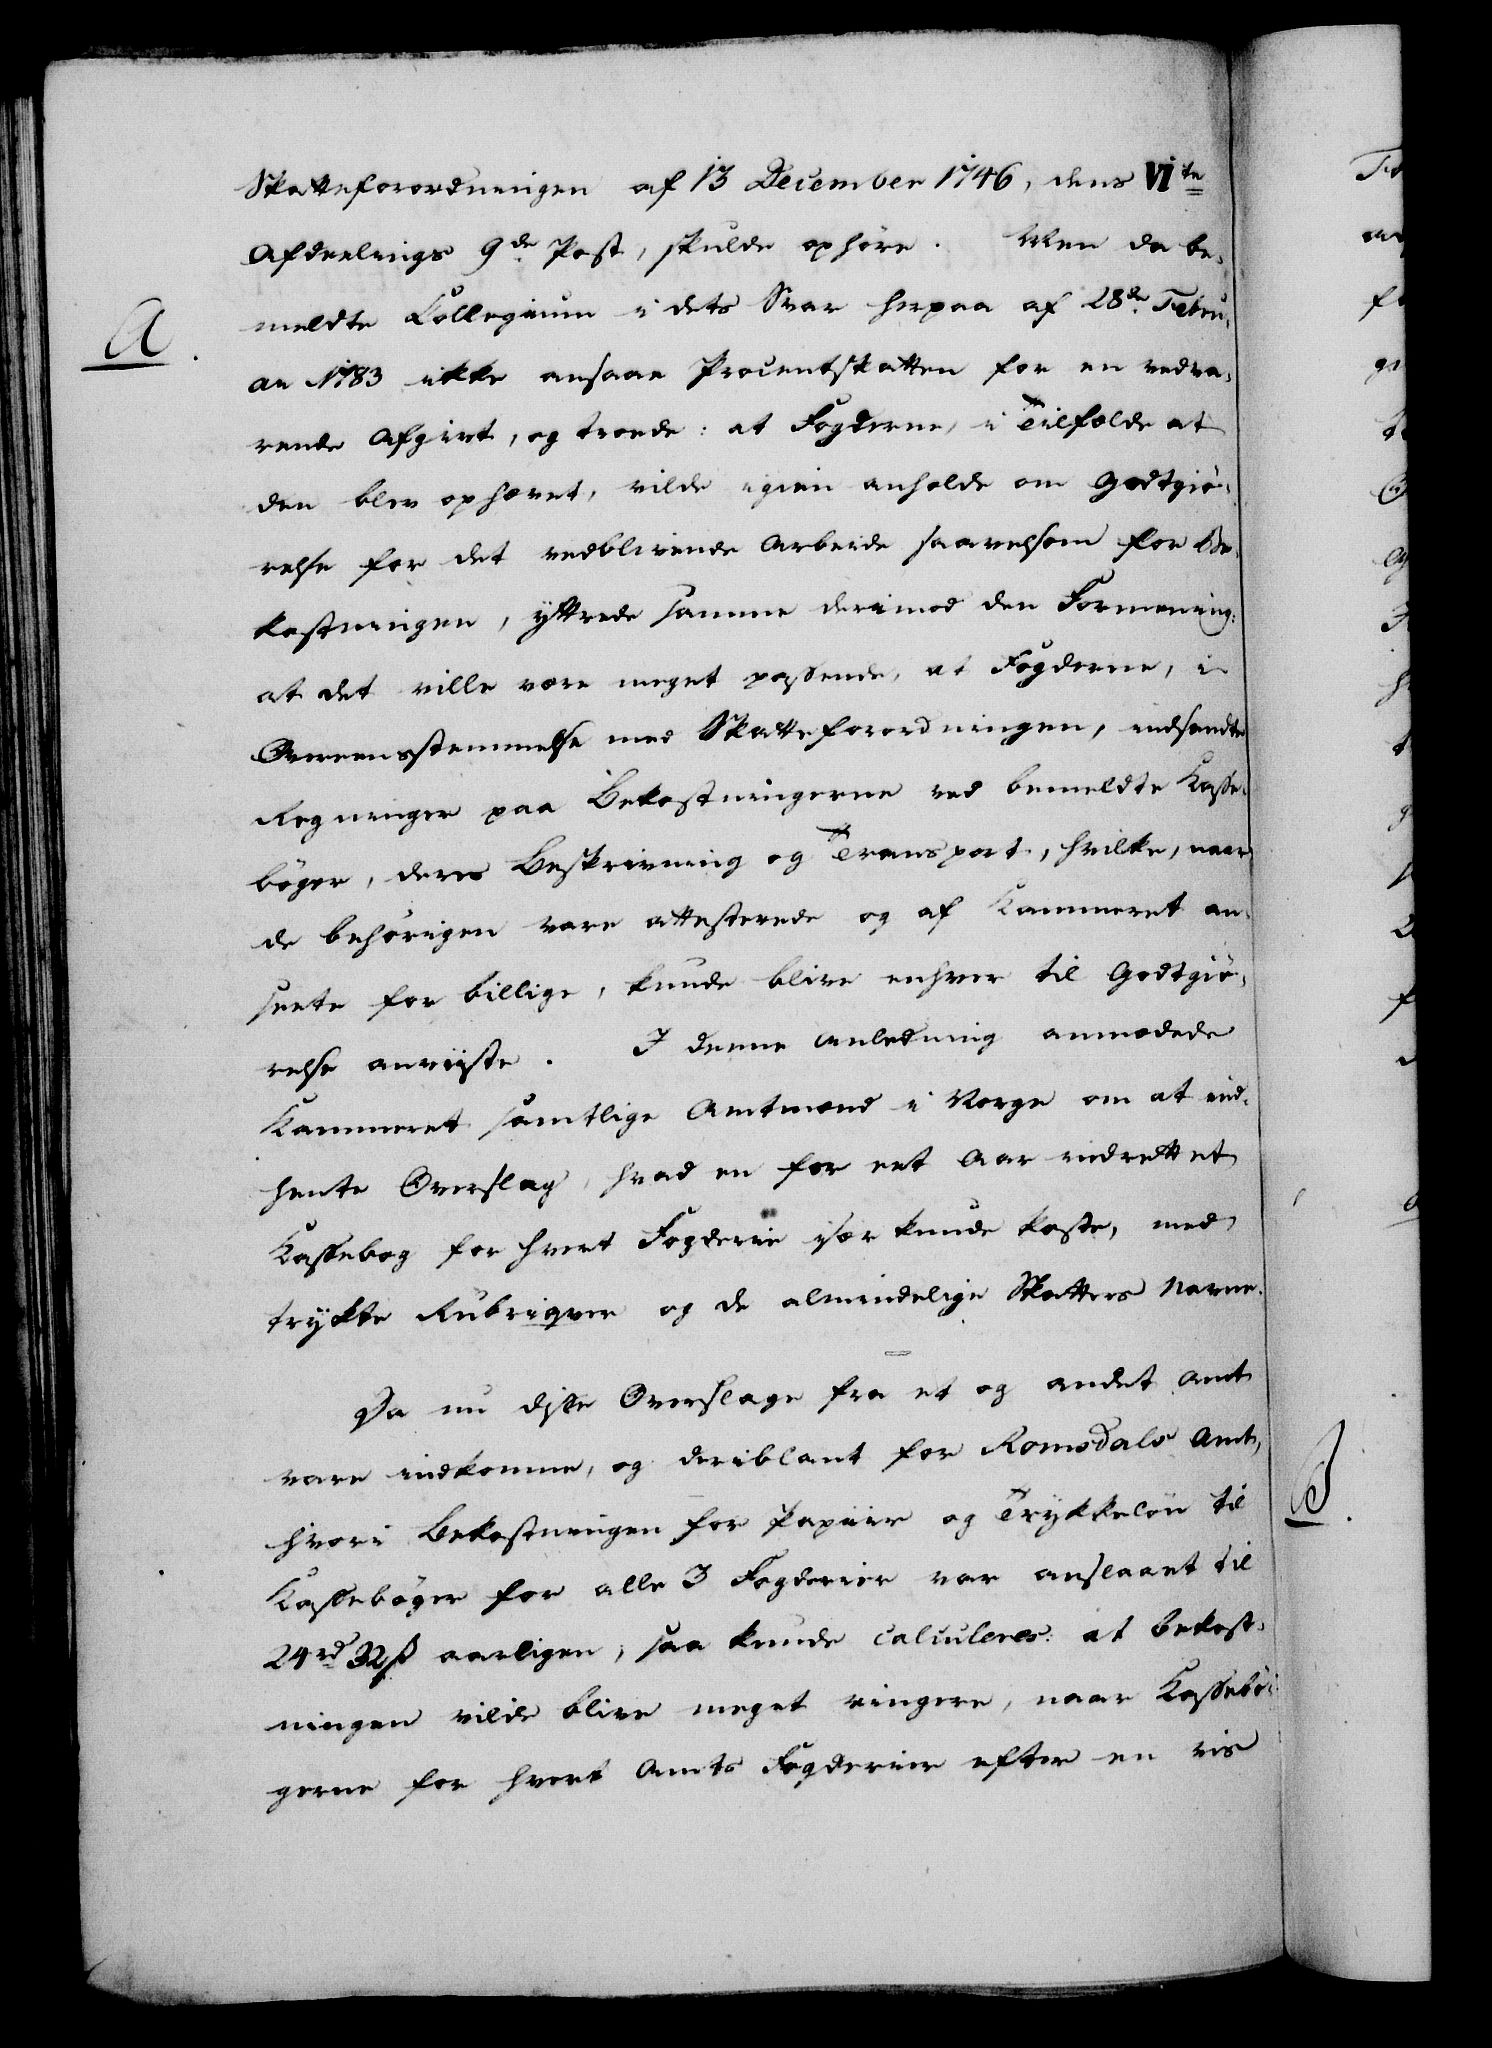 Skatteforordningen af 13 December 1746, dens VI<sup>te</sup>
Afdeelings 9<sup>de</sup> Post, skulde ophöre. Men da be-
meldte Collegium i dets Svar herpaa af 28<sup>de</sup> Febru-
A.
ar 1783 ikke ansaae Procentskatten for en vedva-
rende Afgivt, og troede: at Fogderne, i Tilfælde at
den blev ophævet, vilde igien anholde om Godtgiö-
relse for det vedblivende Arbeide saavelsom for Be-
kostningen, yttrede samme derimod den Formening:
at det ville være meget passende, at Fogderne, i
Overeensstemmelse med Skatteforordningen, indsendte
Regninger paa Bekostningerne ved bemeldte Kasse-
böger, deres Beskrivning og Transport, hvilke, naar
de behörigen vare attesterede og af Kammeret an-
seete for billige, kunde blive enhver til Godtgiö-
relse anviiste. I denne Anledning anmodede
Kammeret samtlige Amtmænd i Norge om at ind-
hente Overslag, hvad en for eet Aar indrettet
Kassebog for hvert Fogderie især kunde koste, med
trykte Rubriqver og de almindelige Skatters Navne.
Da nu disse Overslage fra et og andet Amt
vare indkomne, og deriblant for Romsdals Amt,
hvori Bekostningen for Papiir og Trykkelön til
B.
Kassebøger for alle 3 Fogderier var anslaaet til
24<sup>rd</sup> 32 ß aarligen, saa kunde calculeres: at bekost-
ningen vilde blive meget ringere, naar Kassebö-
gerne for hvert Amts Fogderier efter en vis